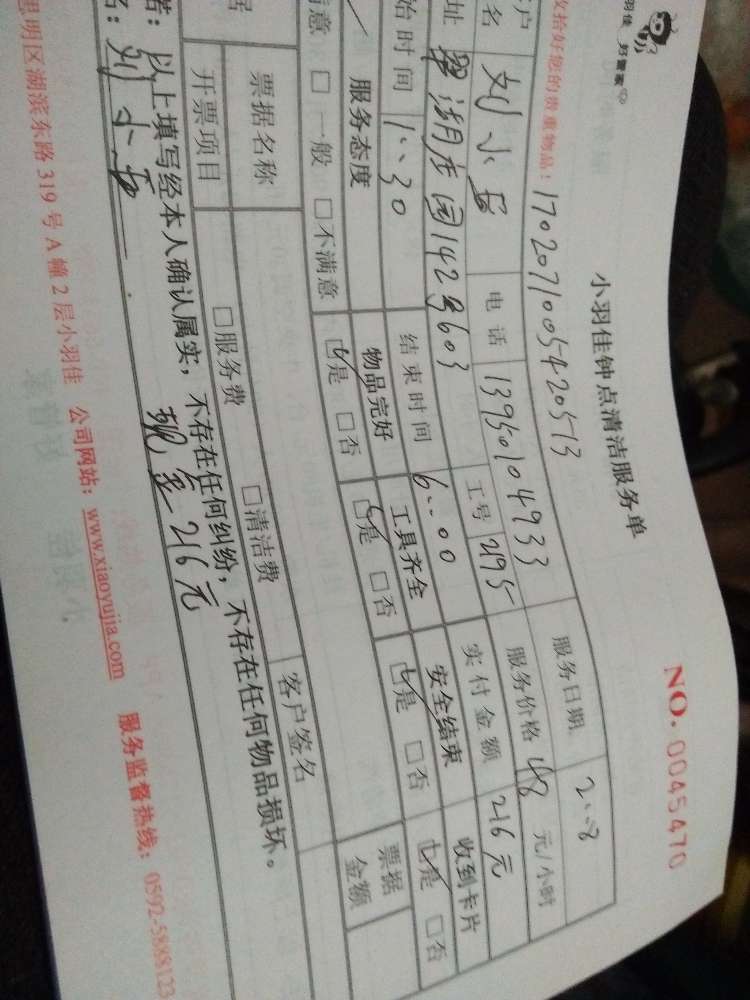 羽佳 好管家
小羽佳钟点清洁服务单
NO. 0045470
收拾好您的贵重物品! 17020710054 20513
服务日期 2..8
客户名 刘小 电话 13950104933 服务价格 48 元/小时
址 翠湖庄园142号603 工号 2195 实付金额 216元
始时间 1..30 结束时间 6..00
服务态度 物品完好 工具齐全 安全结束 收到卡片
意 □一般 □不满意 ☑是 □否 ☑是 □否 ☑是 □否 ☑是 □否
票据名称 客户签名 票据金额
开票项目 □服务费 □清洁费
诺:以上填写经本人确认属实,不存在任何纠纷,不存在任何物品损坏。
名:刘小 现金216元
思明区湖滨东路 319 号 A 幢 2 层小羽佳 公司网站:www.xiaoyujia.com 服务监督热线:0592-5888123